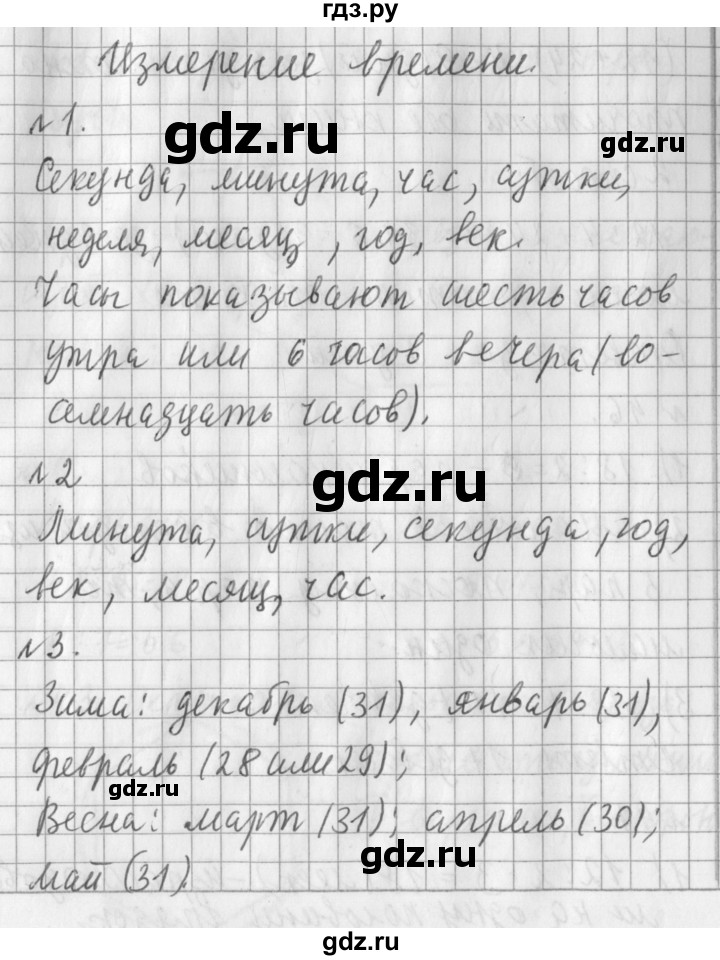 гдз.ру
Измерение времени.
gdz.ru
№1.
gdz.ru
Секунда, минута, час, сутки,
неделя, месяц, год, век.
Часы показывают шесть часов
утра или 6 часов вечера (во-
семнадцать часов).
gdz.ru
№2
Минута, сутки, секунда, год,
век, месяц, час.
№3.
Зима: декабрь (31), январь (31),
февраль (28 или 29);
gdz.ru
Весна: март (31); апрель (30);
gdz.ru
май (31).
gdz.ru